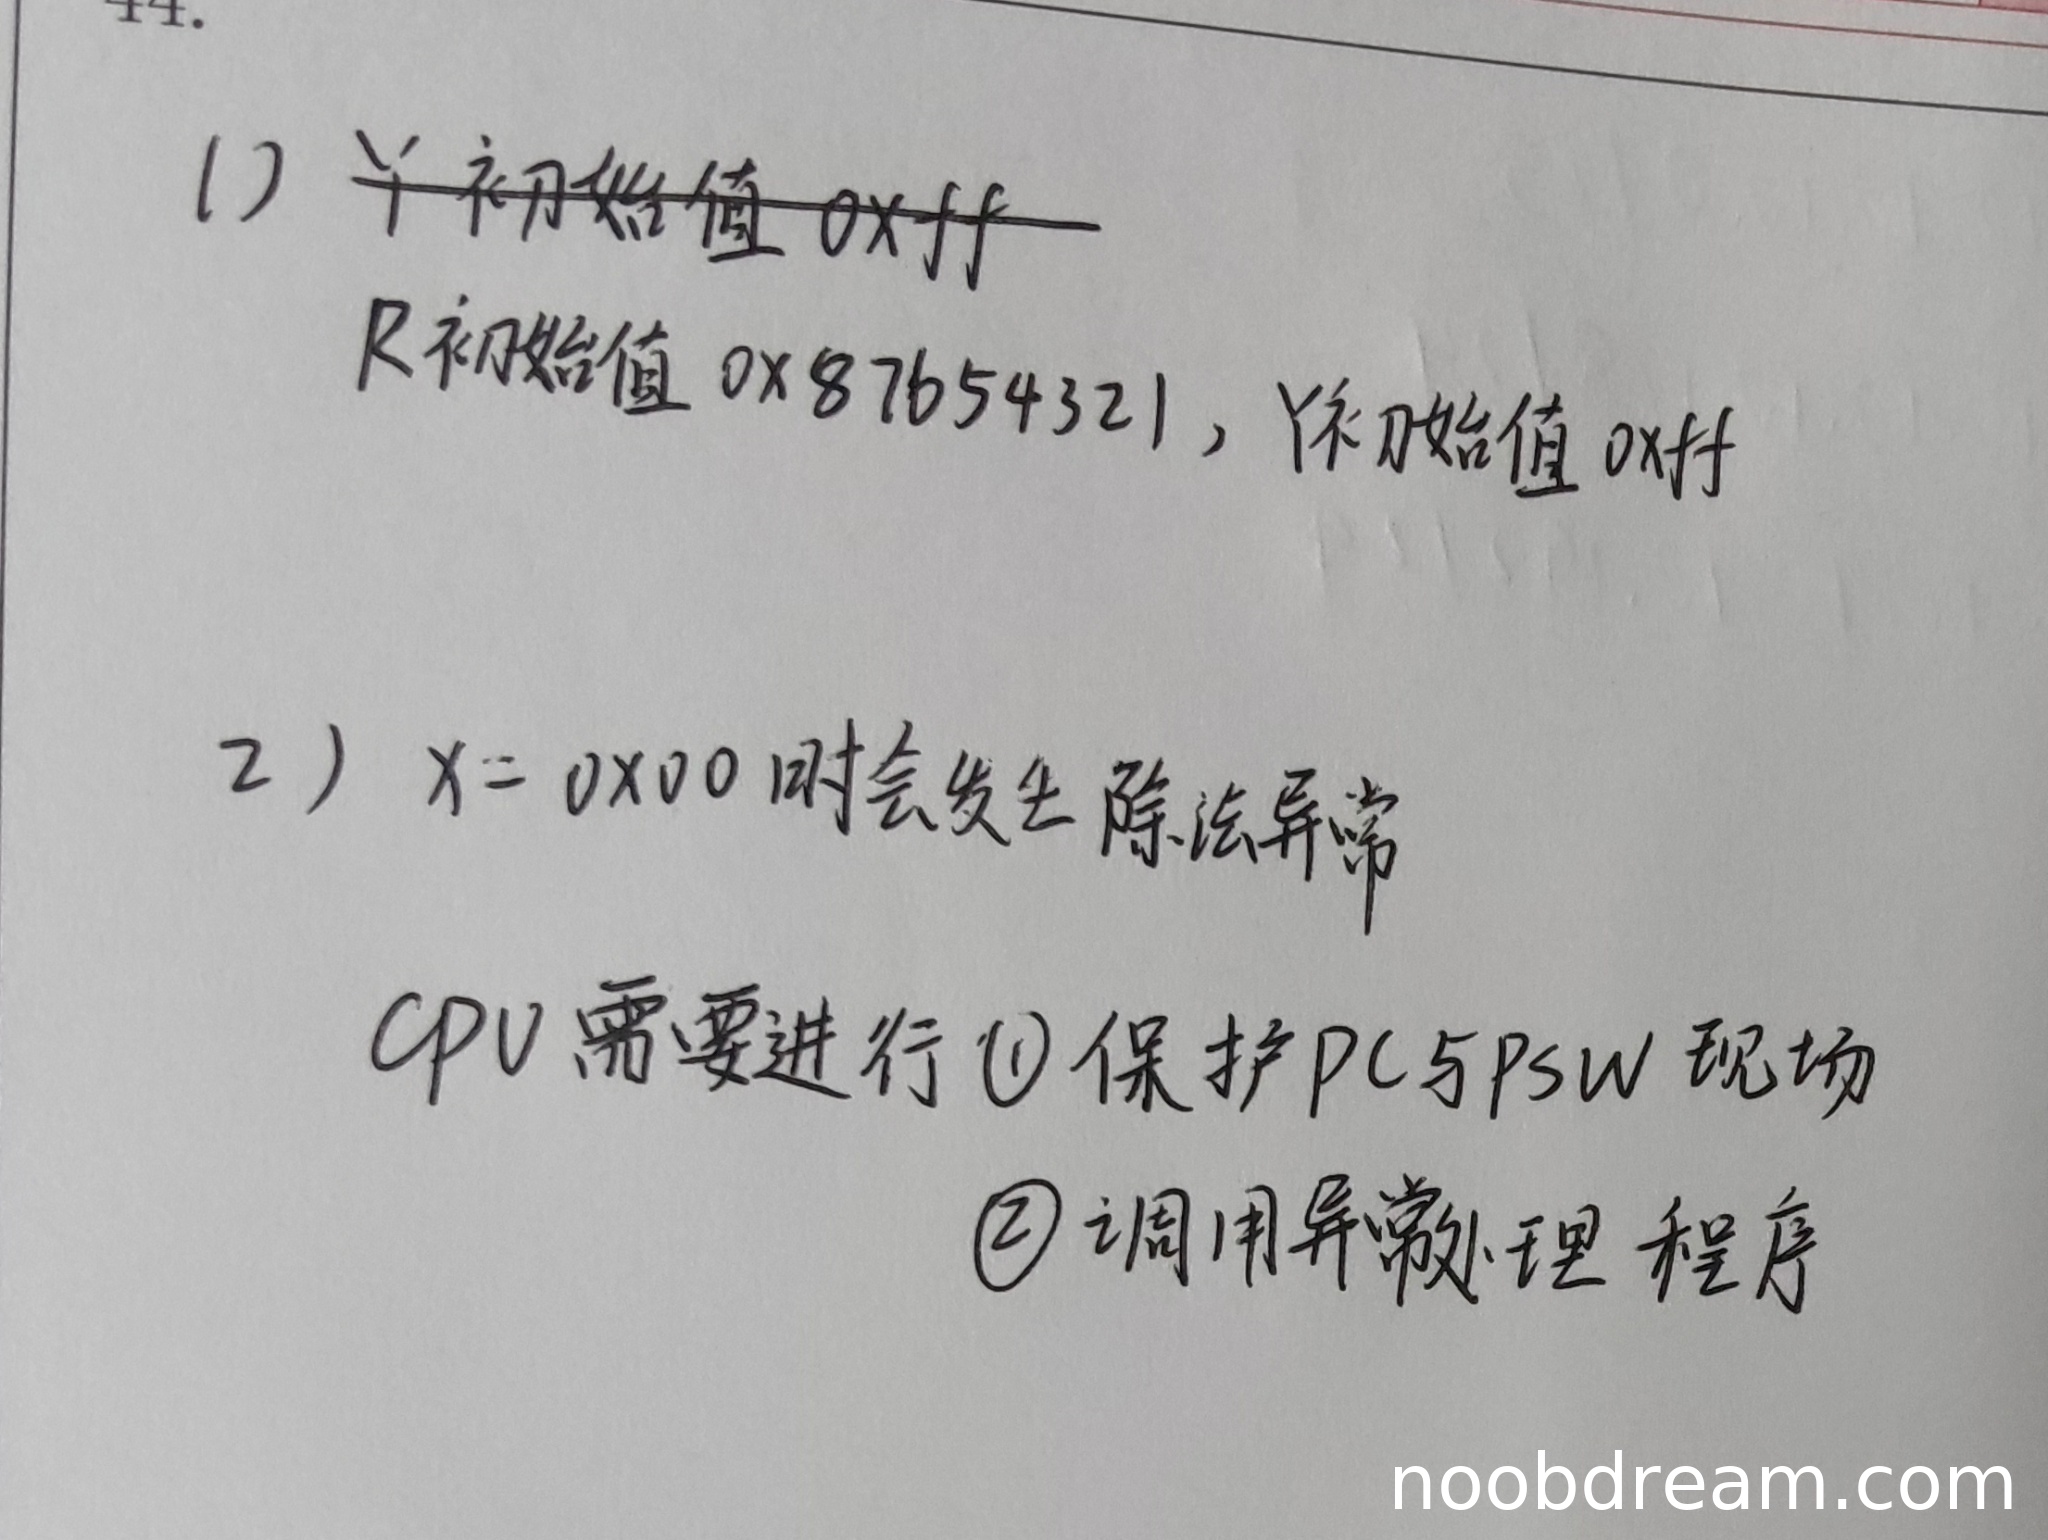 44.
1) Y初始值 0xff
R初始值 0x87654321, Y初始值 0xff
2) X=0x00时会发生除法异常
CPU需要进行①保护PC与PSW现场
②调用异常处理程序
noobdream.com